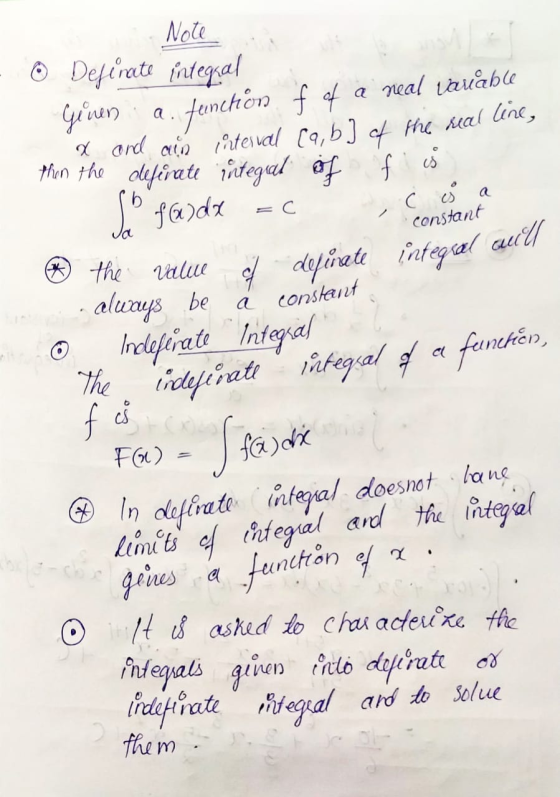 Note
⊙ Definate integral
Given a function f of a real variable
x and an interval [a,b] of the real line,
then the definate integral of f is
∫ₐᵇ f(x)dx = C , C is a
constant
⊛ the value of definate integral will
always be a constant
⊙ Indefinate Integral
The indefinate integral of a function,
f is
F(x) = ∫ f(x)dx
⊛ In definate integral doesnot have
limits of integral and the integral
gives a function of x.
⊙ It is asked to characterize the
integrals given into definate or
indefinate integral and to solve
them.